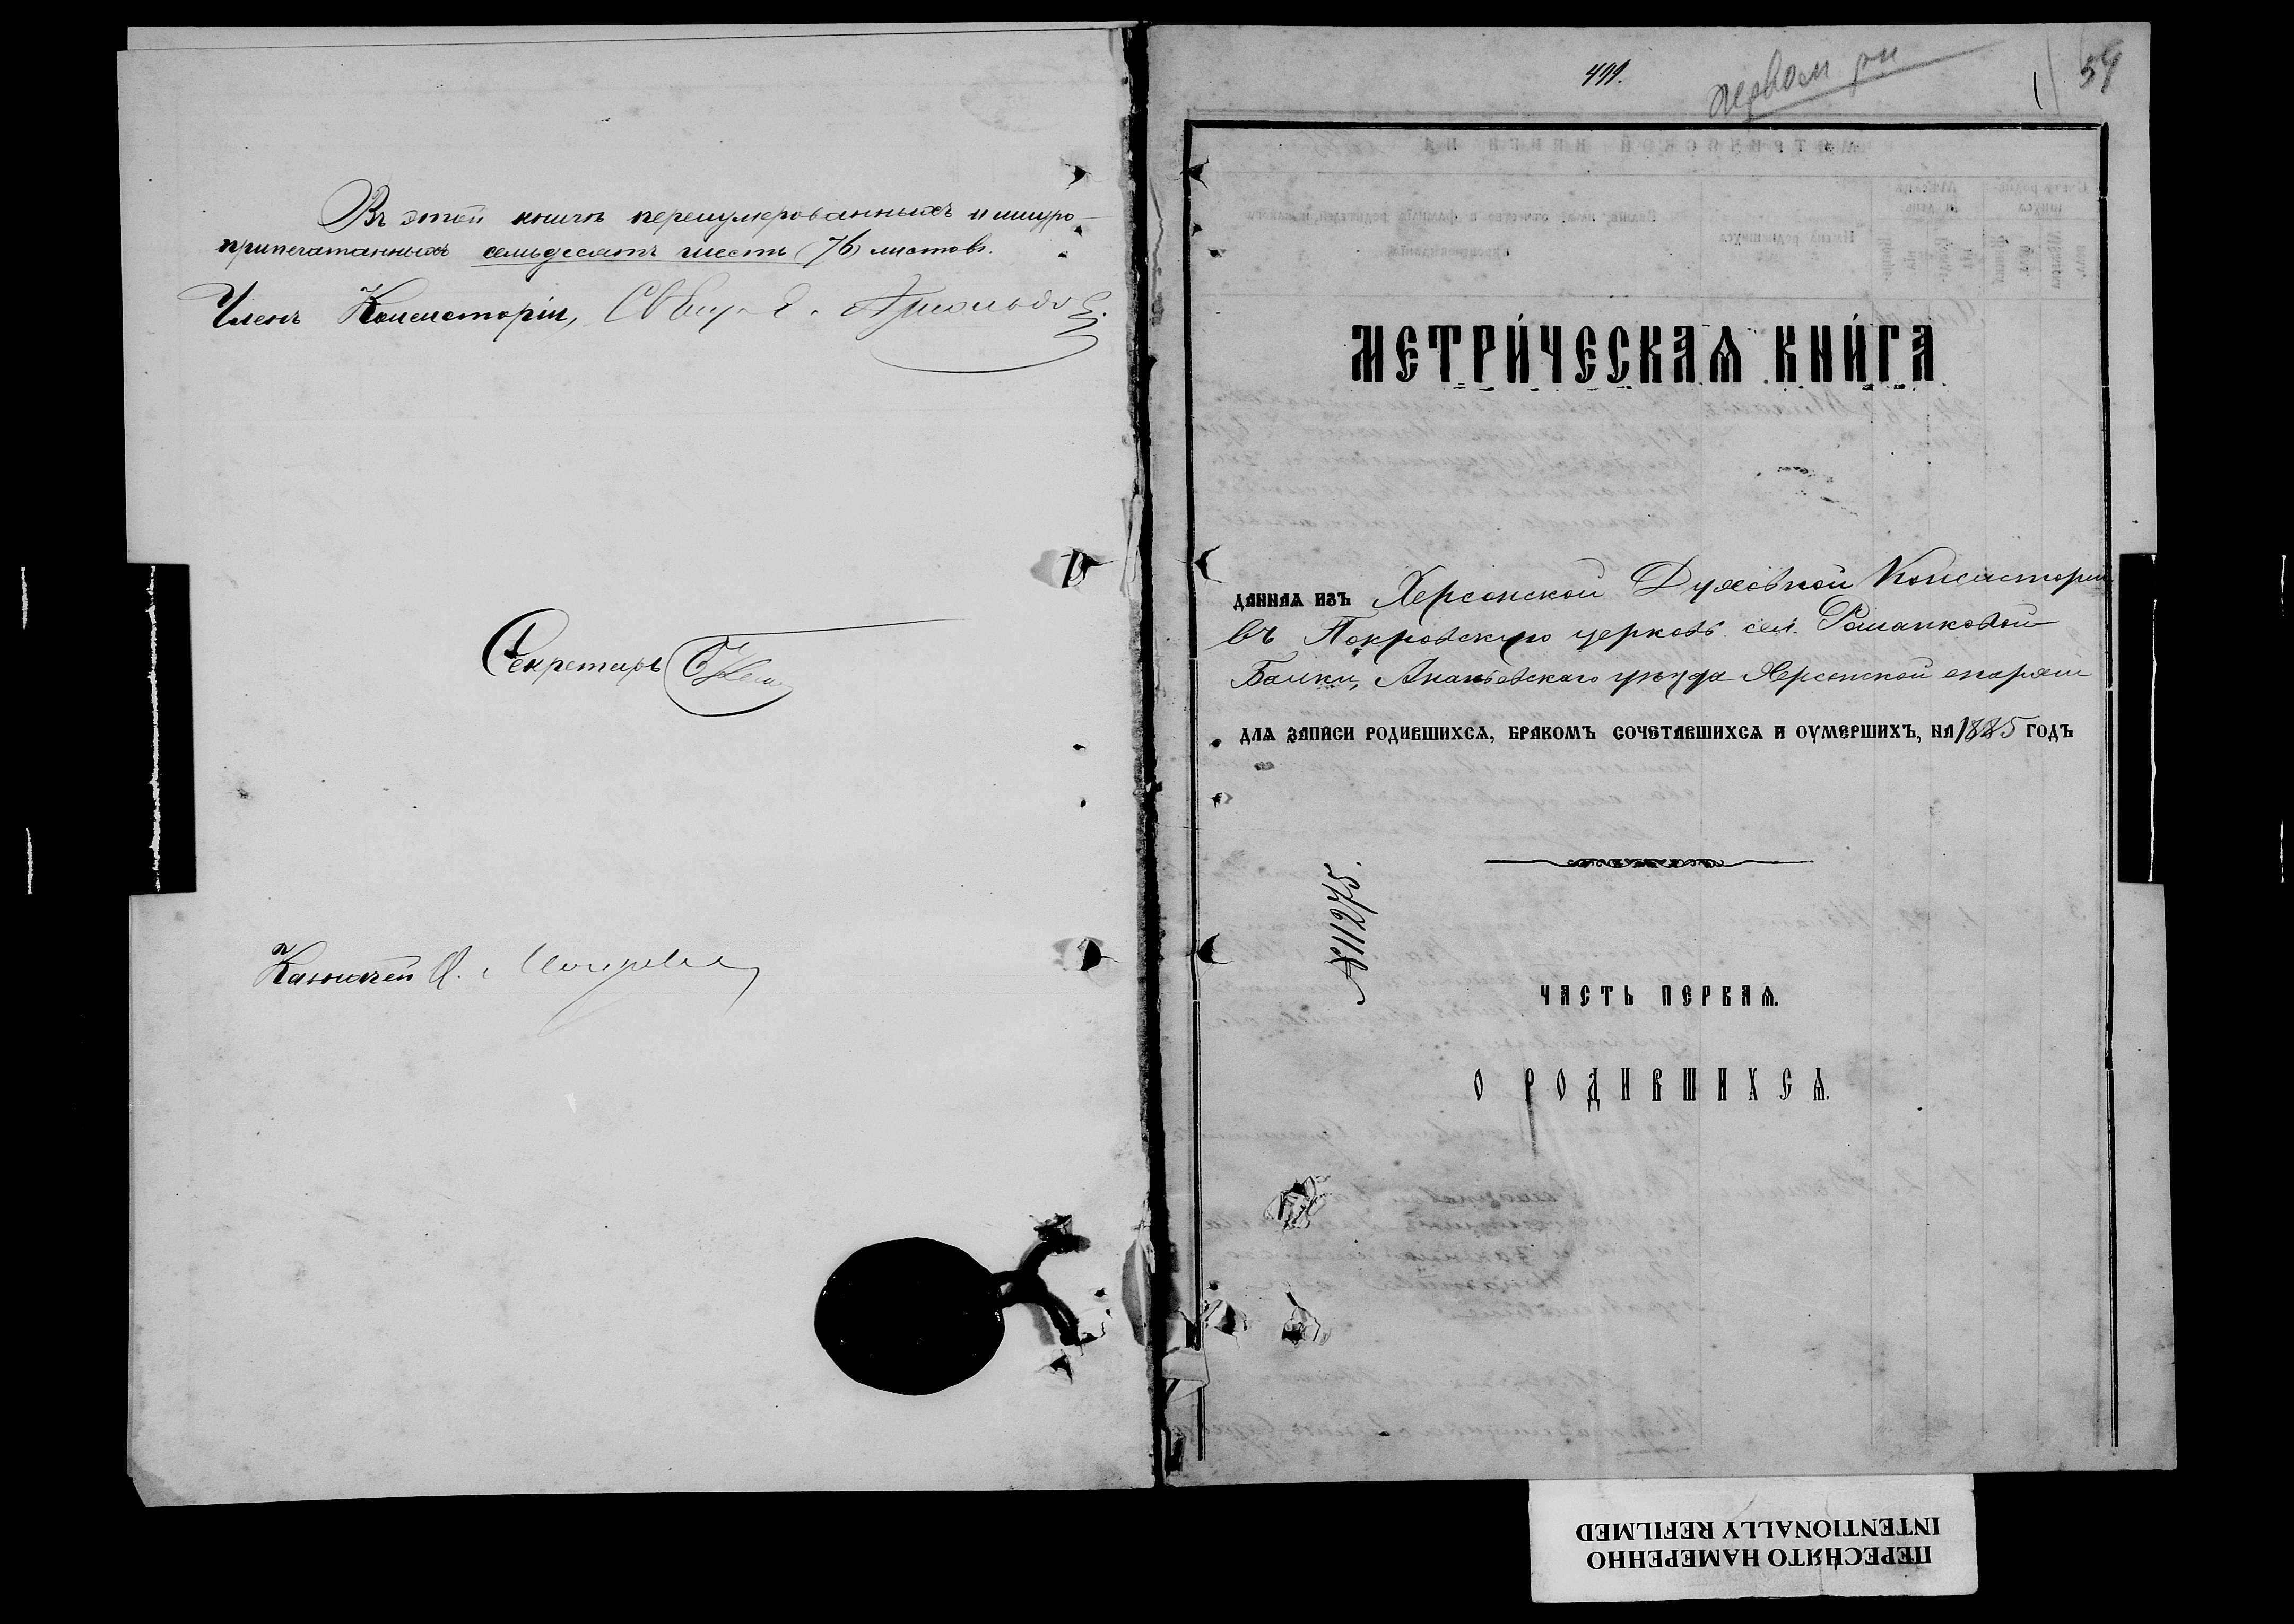 Въ этой книгѣ перенумерованныхъ и шнуро-
припечатанныхъ семьдесятъ шесть (76) листовъ.
Членъ Консисторіи,
Секретарь
Казначей
411.
первом
59
МЕТРИ́ЧЕСКАѦ КНИ́ГА
даннаѧ изъ Херсонской Духовной Консисторіи
въ Покровскую церковь сел. Романковой
Балки, Ананьевскаго уѣзда Херсонской епархіи
длѧ записи родившихсѧ, бракомъ сочетавшихсѧ и оумершихъ, на 1885 годъ
№ 11275.
ЧАСТЬ ПЕРВАѦ.
О РОДИВШИХСѦ.
ПЕРЕСНЯТО НАМЕРЕННО
INTENTIONALLY REFILMED